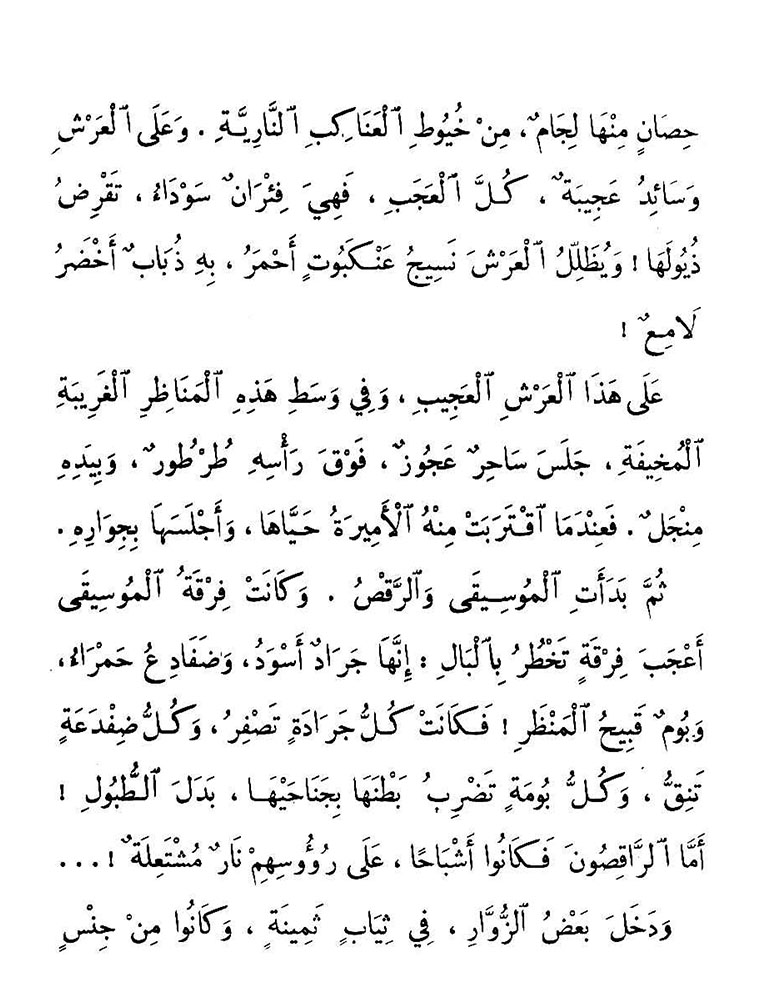 حِصَانٍ مِنْهَا لِجَامٌ، مِنْ خُيُوطِ ٱلْعَنَاكِبِ ٱلنَّارِيَّةِ . وَعَلَى ٱلْعَرْشِ
وَسَائِدُ عَجِيبَةٌ، كُلَّ ٱلْعَجَبِ، فَهِيَ فِئْرَانٌ سَوْدَاءُ، تَقْرِضُ
ذُيُولَهَا ! وَيُظَلِّلُ ٱلْعَرْشَ نَسِيجُ عَنْكَبُوتٍ أَحْمَرُ، بِهِ ذُبَابٌ أَخْضَرُ
لَامِعٌ !
عَلَى هَذَا ٱلْعَرْشِ ٱلْعَجِيبِ، وَفِي وَسَطِ هَذِهِ ٱلْمَنَاظِرِ ٱلْغَرِيبَةِ
ٱلْمُخِيفَةِ، جَلَسَ سَاحِرٌ عَجُوزٌ، فَوْقَ رَأْسِهِ طُرْطُورٌ، وَبِيَدِهِ
مِنْجَلٌ. فَعِنْدَمَا ٱقْتَرَبَتْ مِنْهُ ٱلْأَمِيرَةُ حَيَّاهَا، وَأَجْلَسَهَا بِجِوَارِهِ.
ثُمَّ بَدَأَتِ ٱلْمُوسِيقَى وَٱلرَّقْصُ . وَكَانَتْ فِرْقَةُ ٱلْمُوسِيقَى
أَعْجَبَ فِرْقَةٍ تَخْطُرُ بِٱلْبَالِ : إِنَّهَا جَرَادٌ أَسْوَدُ، وَضَفَادِعُ حَمْرَاءُ،
وَبُومٌ قَبِيحُ ٱلْمَنْظَرِ ! فَكَانَتْ كُلُّ جَرَادَةٍ تَصْفِرُ، وَكُلُّ ضِفْدَعَةٍ
تَنِقُّ، وَكُلُّ بُومَةٍ تَضْرِبُ بَطْنَهَا بِجَنَاحَيْهَا، بَدَلَ ٱلطُّبُولِ !
أَمَّا ٱلرَّاقِصُونَ فَكَانُوا أَشْبَاحًا، عَلَى رُؤُوسِهِمْ نَارٌ مُشْتَعِلَةٌ !...
وَدَخَلَ بَعْضُ ٱلزُّوَّارِ، فِي ثِيَابٍ ثَمِينَةٍ، وَكَانُوا مِنْ جِنْسٍ